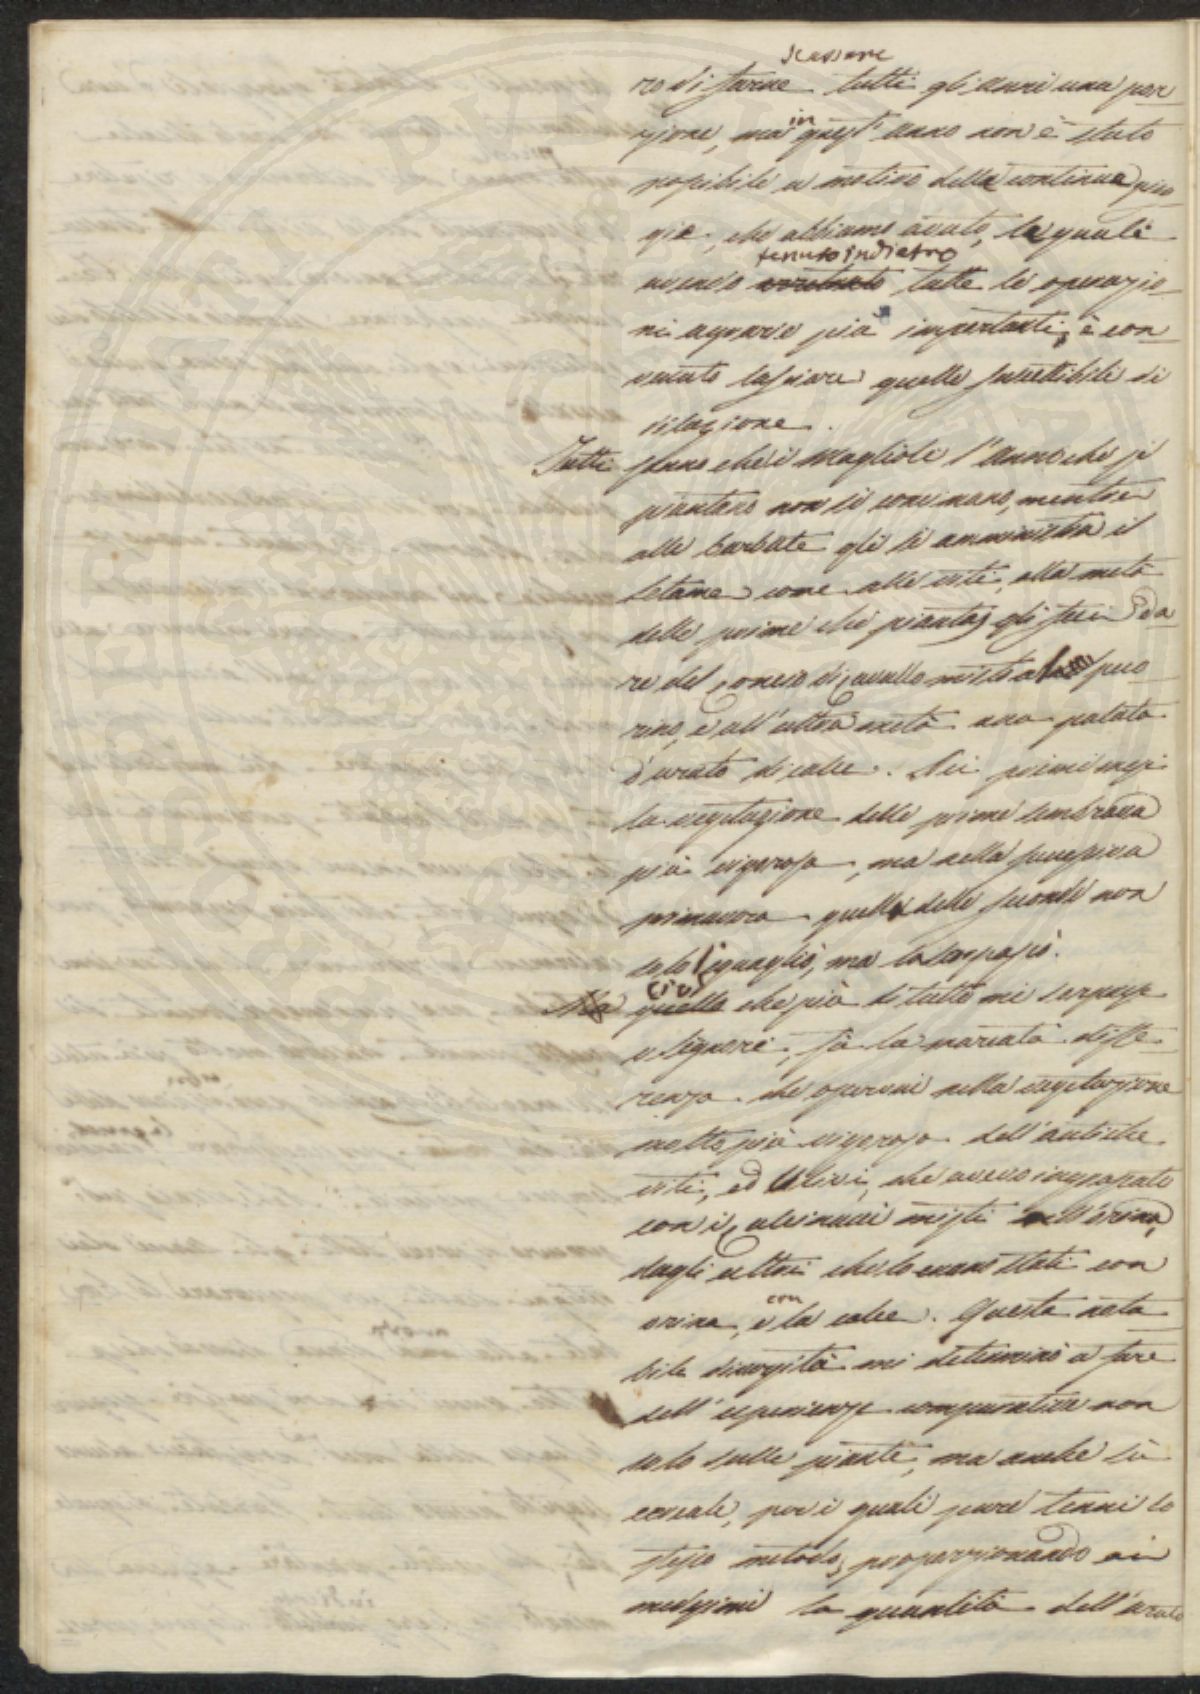 scassare
ro di farne tutti gli anni una por
zione, ma in quest'anno non è stato
possibile a motivo della continua pio
gia, che abbiamo avuto, la quale
tenuto indietro
avendo tutte le operazio
ni agrarie più importanti, è con
venuto lasciare quelle suscettibili di
dilazione.
Tutti sanno che i magliole l'anno che si
piantano non si concimano, mentre
alle barbate gli si amministra il
letame come alle viti, alla metà
delle prime che piantai gli feci da
re del concio di cavallo misto a peco
rino, e all'altra metà una palata
d'urato di calce. Nei primi mesi
la vegetazione delle prime sembrava
più vigorosa, ma nella successiva
primavera quella delle seconde non
solo l'eguagliò, ma la sorpassò.
Ma ciò che più di tutto mi sorprese
o Signori, fù la marcata diffe
renza che osservai nella vegetazione
molto più vigorosa dell'antiche
viti, ed Ulivi, che avevo ingrassate
con i calcinacci misti all'orina,
dagli altri che lo erano stati con
orina, e con la calce. Questa nota
bile diversità mi determinò a fare
dell'esperienze comparative non
solo sulle piante, ma anche sù
cereali, per i quali pure tenni lo
stesso metodo, proporzionando ai
medesimi la quantità dell'urato